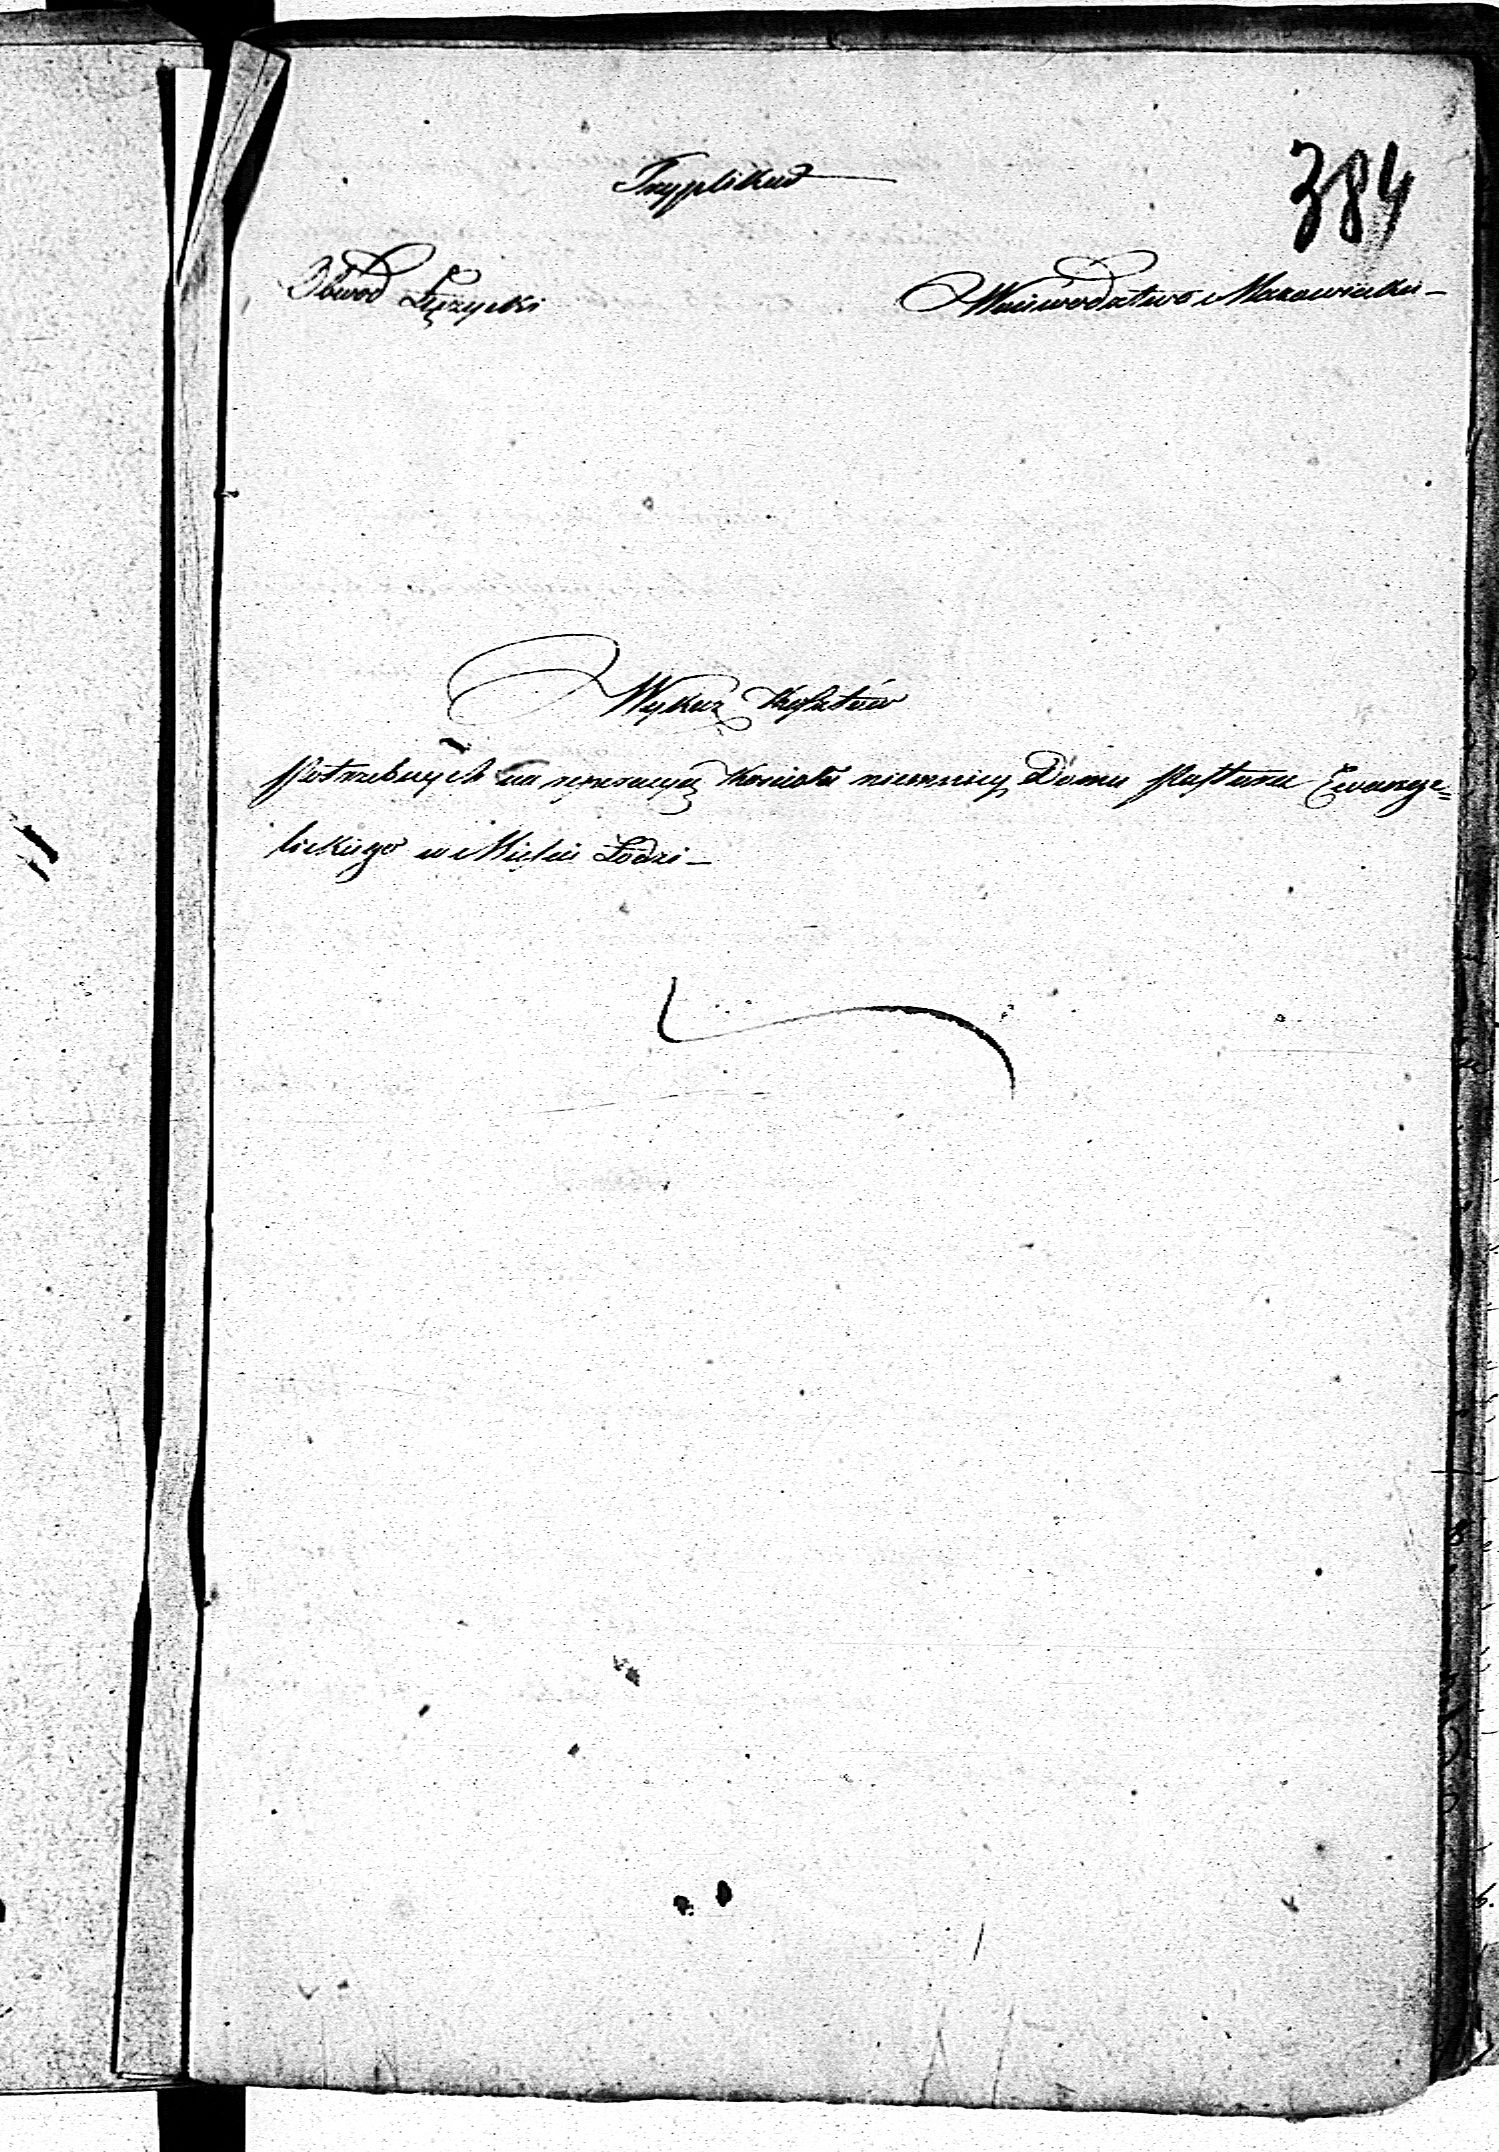 Tryplikat
384
Obwod Łęczycki
Woiewodztwo Mazowieckie
Wykaz Kosztów
Potrzebnych na reperacyą Kościoła niemniey Domu Pastora Ewange=
lickiego w Mieście Łodzi